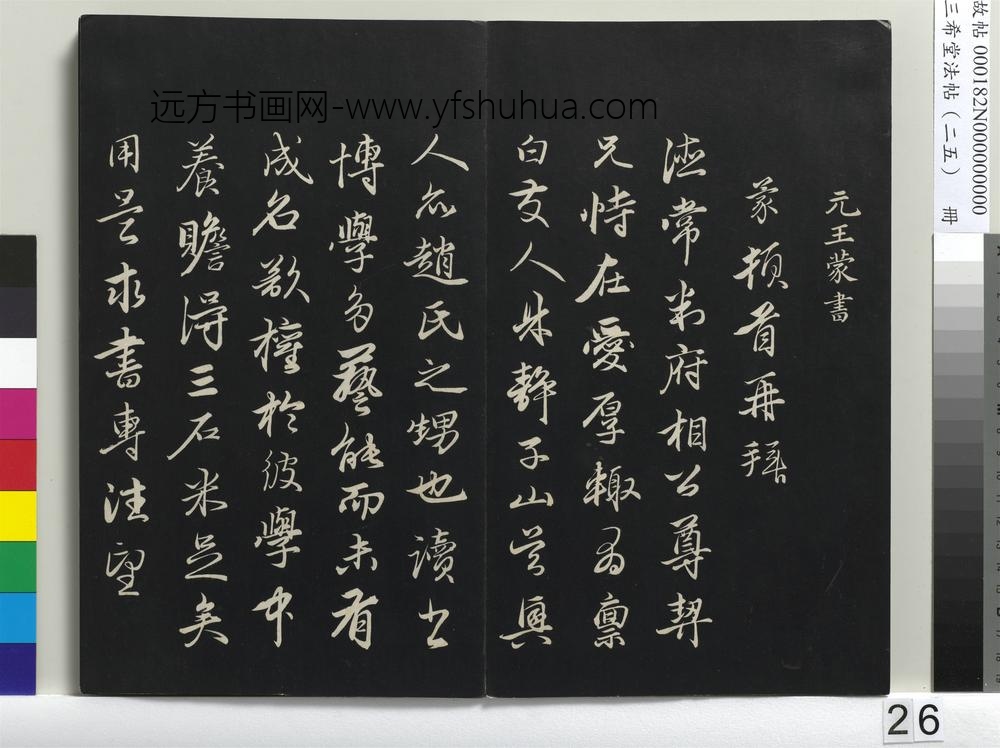 元王蒙書
蒙頓首再拜
德常判府相公尊契
兄恃在愛厚輙有禀
白友人朱靜子山吴興
人亦趙氏之甥也讀書
博學多藝能而未有
成名欲權於彼學中
養贍得三石米足矣
用是求書專注望
远方书画网-www.yfshuhua.com
故帖 000182N000000000
三希堂法帖(二五) 冊
26